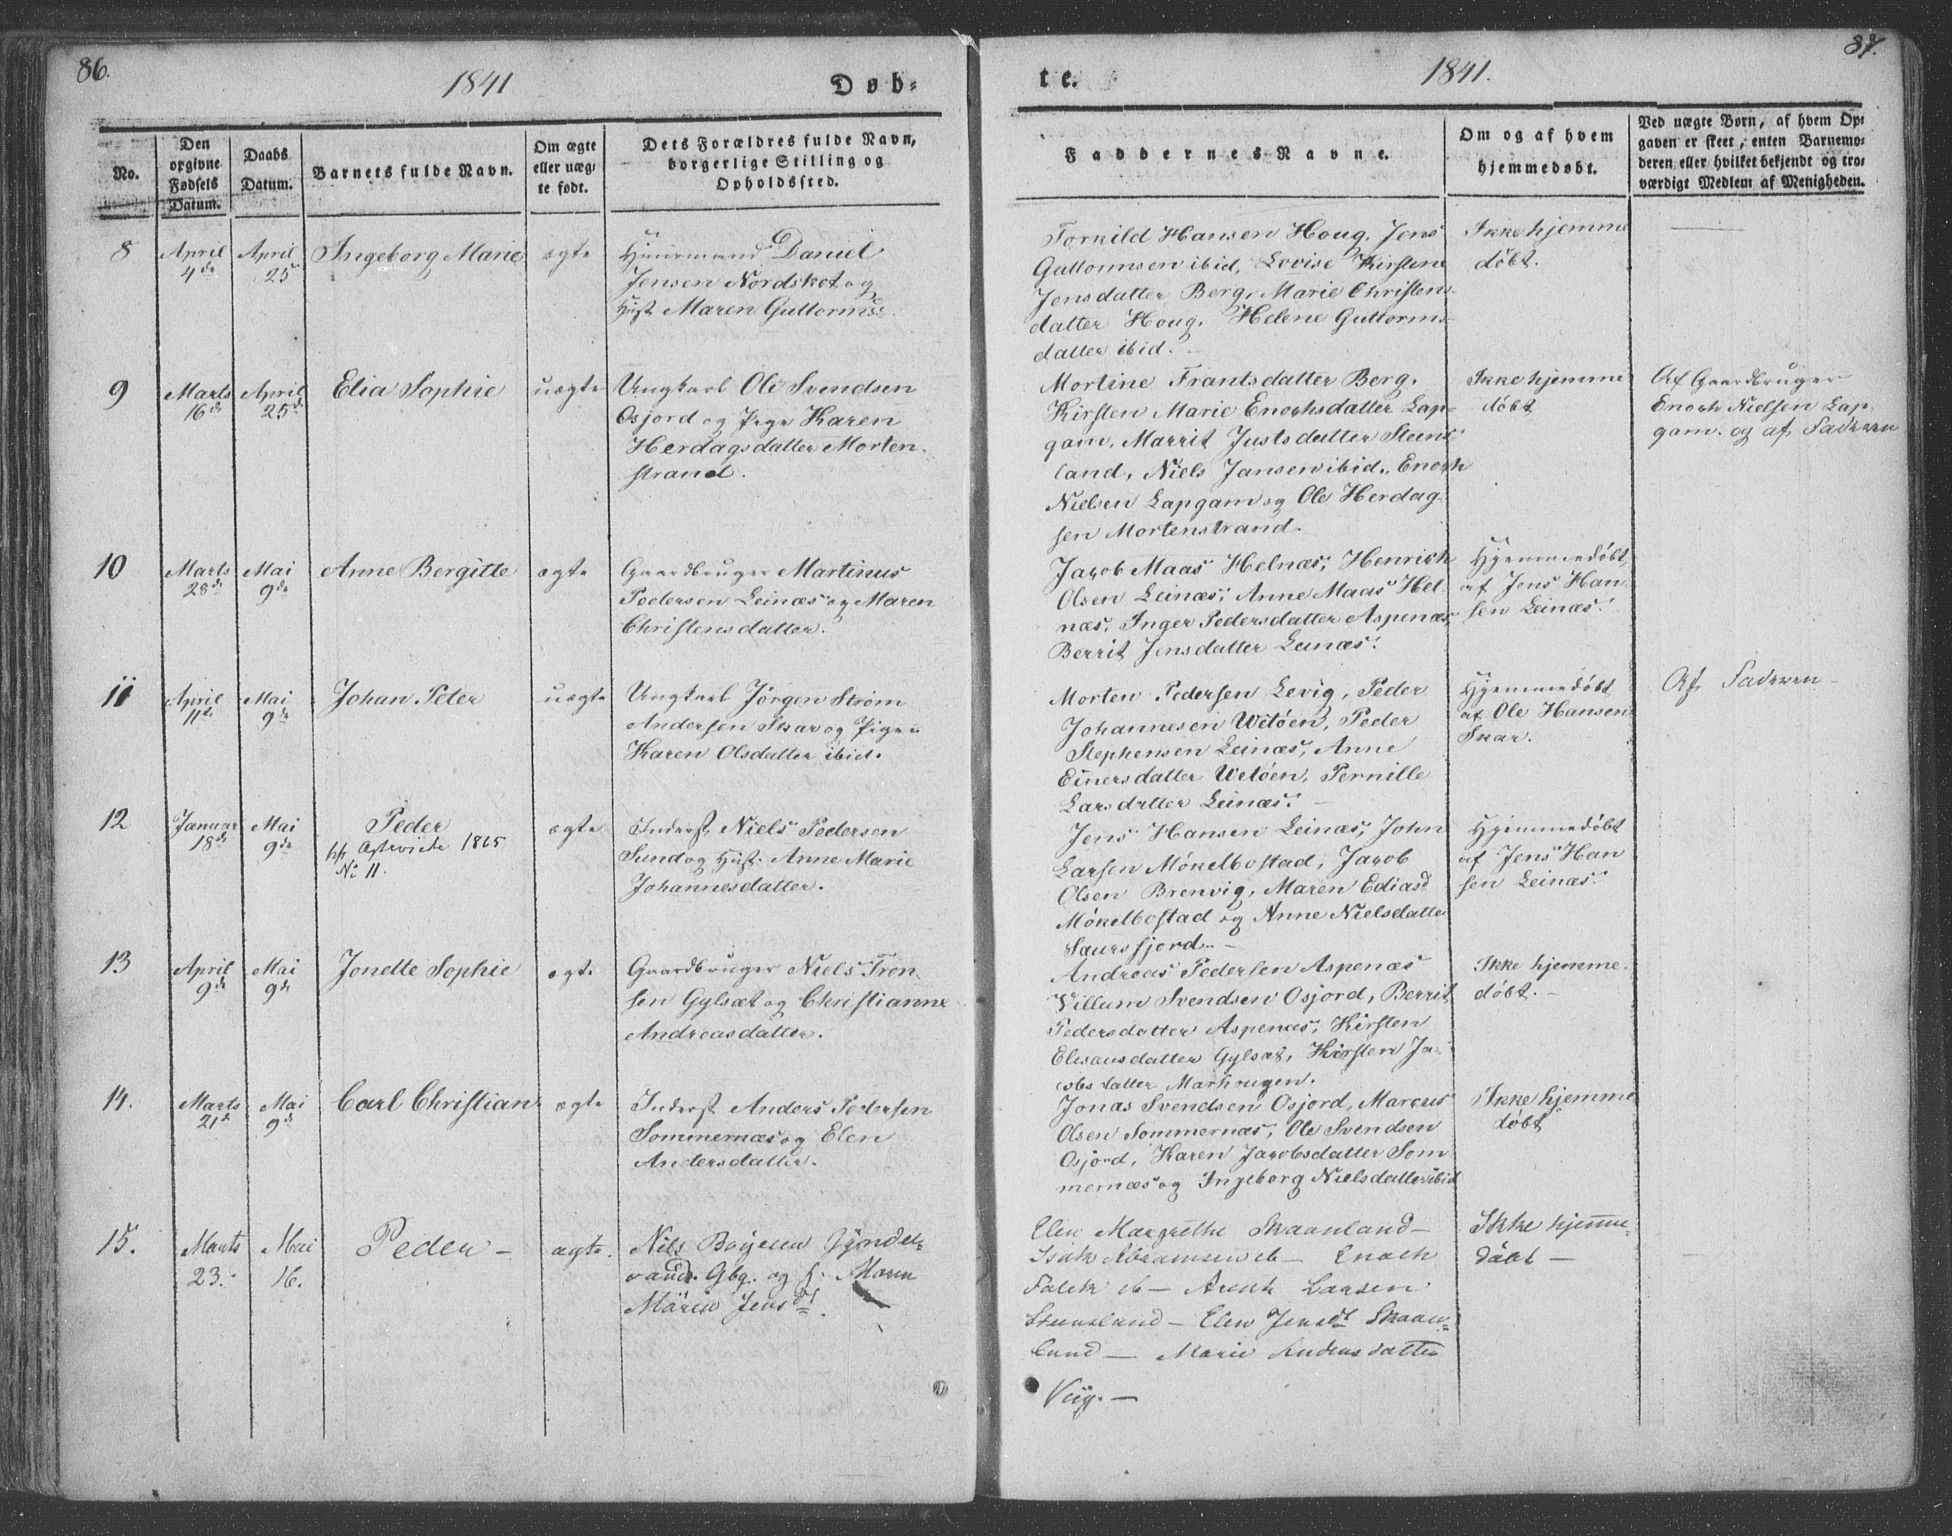 86.
1841
Døb-
No.
Den
opgivne
Fødsels
Datum.
Daabs
Datum.
Barnets fulde Navn.
Om ægte
eller uæg-
te født.
Dets Forældres fulde Navn,
borgerlige Stilling og
Opholdssted.
8
April
4de
April
25
Ingeborg Marie
ægte
Huusmand Daniel
Jensen Nordskot og
Hust. Maren Guttorms:
9
Marts
16de
April
25d
Elia Sophie
uægte
Ungkarl Ole Svendsen
Osjord og Pige Karen
Herdagsdatter Morten-
strand.
10
Marts
28de
Mai
9de
Anne Bergitte
ægte
Gaardbruger Martinus
Pedersen Leinæs og Maren
Christensdatter.
11
April
11te
Mai
9de
Johan Peter
uægte
Ungkarl Jörgen Strøm
Andersen Skar og Pigen
Karen Olsdatter ibid.
12
Januar
18de
Mai
9de
Peder
1865
No 11.
ægte
Inderst Niels Pedersen
Sund og Hust. Anne Marie
Johannesdatter.
13
April
9de
Mai
9de
Jonette Sophie
ægte
Gaardbruger Niels Tron-
sen Gylsæt og Christianne
Andreasdatter.
14.
Marts
21de
Mai
9de
Carl Christian
ægte
Inderst Anders Pedersen
Sommernæs og Elen
Andersdatter.
15.
Marts
23.
Mai
16.
Peder –
ægte.
Nils
Gbg. og
Jensdt.
te.
1841.
87.
Faddernes Navne.
Om og af hvem
hjemmedøbt.
Ved uægte Børn, af hvem Op-
gaven er skeet, enten Barnemo-
deren eller hvilket bekjendt og tro-
værdigt Medlem af Menigheden.
Torkild Hansen Houg, Jens
Guttormsen ibid, Lovise Kirstene
Jensdatter Berg, Marie Christens-
datter Houg, Helene Guttorms-
datter ibid.
Ikke hjemme
døbt.
Mortine Frantsdatter Berg.
Kirsten Marie Enochsdatter Lap-
gam, Marrit Justsdatter Steins-
land, Niels Jansen ibid., Enoch
Nielsen Lapgam og Ole Herdag-
sen Mortenstrand.
Ikke hjemme
døbt
Af Gaardbruger
Enoch Nielsen Lap-
gam. og af Faderen
Jacob Maas Helnæs, Henrich
Olsen Leinæs, Anne Maas Hel-
næs, Inger Pedersdatter Aspenæs,
Berrit Jensdatter Leinæs.
Hjemmedøbt
af Jens Han-
sen Leinæs.
Morten Pedersen Levig, Peder
Johannesen Wetøen, Peder
Stephensen Leinæs, Anne
Einersdatter Wetøen, Pernille
Larsdatter Leinæs.
Hjemmedøbt
af Ole Hansen
Skar.
Af Faderen
Jens Hansen Leinæs, John
Larsen Mökelbostad, Jacob
Olsen Brenvig, Maren Ediasd
Mökelbostad og Anne Nielsdatter
Saursfjord.
Hjemmedøbt
af Jens Han
sen Leinæs.
Andreas Pedersen Aspenæs
Villum Svendsen Osjord, Berrit
Pedersdatter Aspenæs, Kirsten
Elisæusdatter Gylsæt, Kirsten Ja-
cobsdatter Markhugen.
Ikke hjemme-
døbt.
Jonas Svendsen Osjord, Marcus
Olsen Sommernæs, Ole Svendsen
Osjord, Karen Jacobsdatter Som
mernæs og Ingeborg Nielsdatter ibid
Ikke hjemme
døbt
Elen Margrethe Skaanland –
Isak Abramsen ib – Enoch
Falch ib – Arent Larsen
Steensland – Elen Jensdt Skaan-
land – Marie Andersdatter
Viig. –
Ikke hjemme-
døbt –